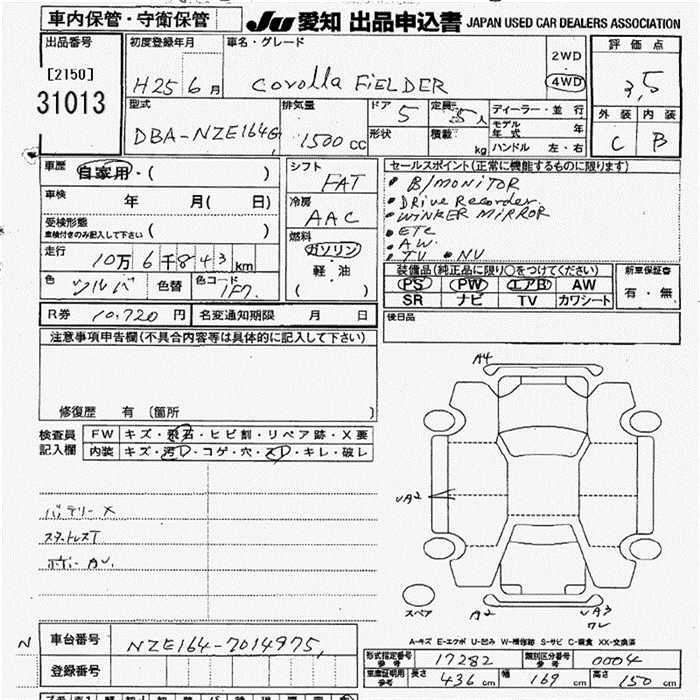 車内保管・守衛保管
JU 愛知 出品申込書 JAPAN USED CAR DEALERS ASSOCIATION
出品番号
[2150]
31013
初度登録年月
H25 6 月
車名・グレード
COROLLA FIELDER
2WD
・
4WD
評価点
3,5
外装 内装
C B
型式
DBA-NZE164G
排気量
1500 CC
ドア 5
形状
定員 5 人
積載 kg
ディーラー・並行
モデル年式 年
ハンドル 左・右
車歴 自家用・( )
車検 年 月( 日)
受検形態
車検付きのみ記入して下さい ( )
走行 10万 6千843 km
色 シルバ 色替 色コード 1F7
シフト
FAT
冷房
AAC
燃料
ガソリン
軽・油
( )
セールスポイント(正常に機能するものに限ります)
• B/MONITOR
• DRive Recorder.
• WINKER MIRROR
• ETC
• AW.
• TV • NV
装備品(純正品に限り○をつけてください)
PS PW エアB AW
SR ナビ TV カワシート
新車保証書
有・無
R券 10,720 円 名変通知期限 月 日
後日品
注意事項申告欄(不具合内容等は具体的に記入して下さい)
修復歴 有 (箇所 )
検査員
記入欄
FW キズ・飛石・ヒビ割・リペア跡・X要
内装 キズ・汚レ・コゲ・穴・スレ・キレ・破レ
バッテリー X
スタットレスT
ボデー AU.
A4
UA2
A2
UA3
ワレ
スペア
A-キズ E-エクボ U-凹み W-補修跡 S-サビ C-腐食 XX-交換済
N
車台番号 NZE164-7014975
登録番号
形式指定番号
参考
17282
類別区分番号
参考
0004
車庫証明用
参考
長さ 436 cm 幅 169 cm 高さ 150 cm